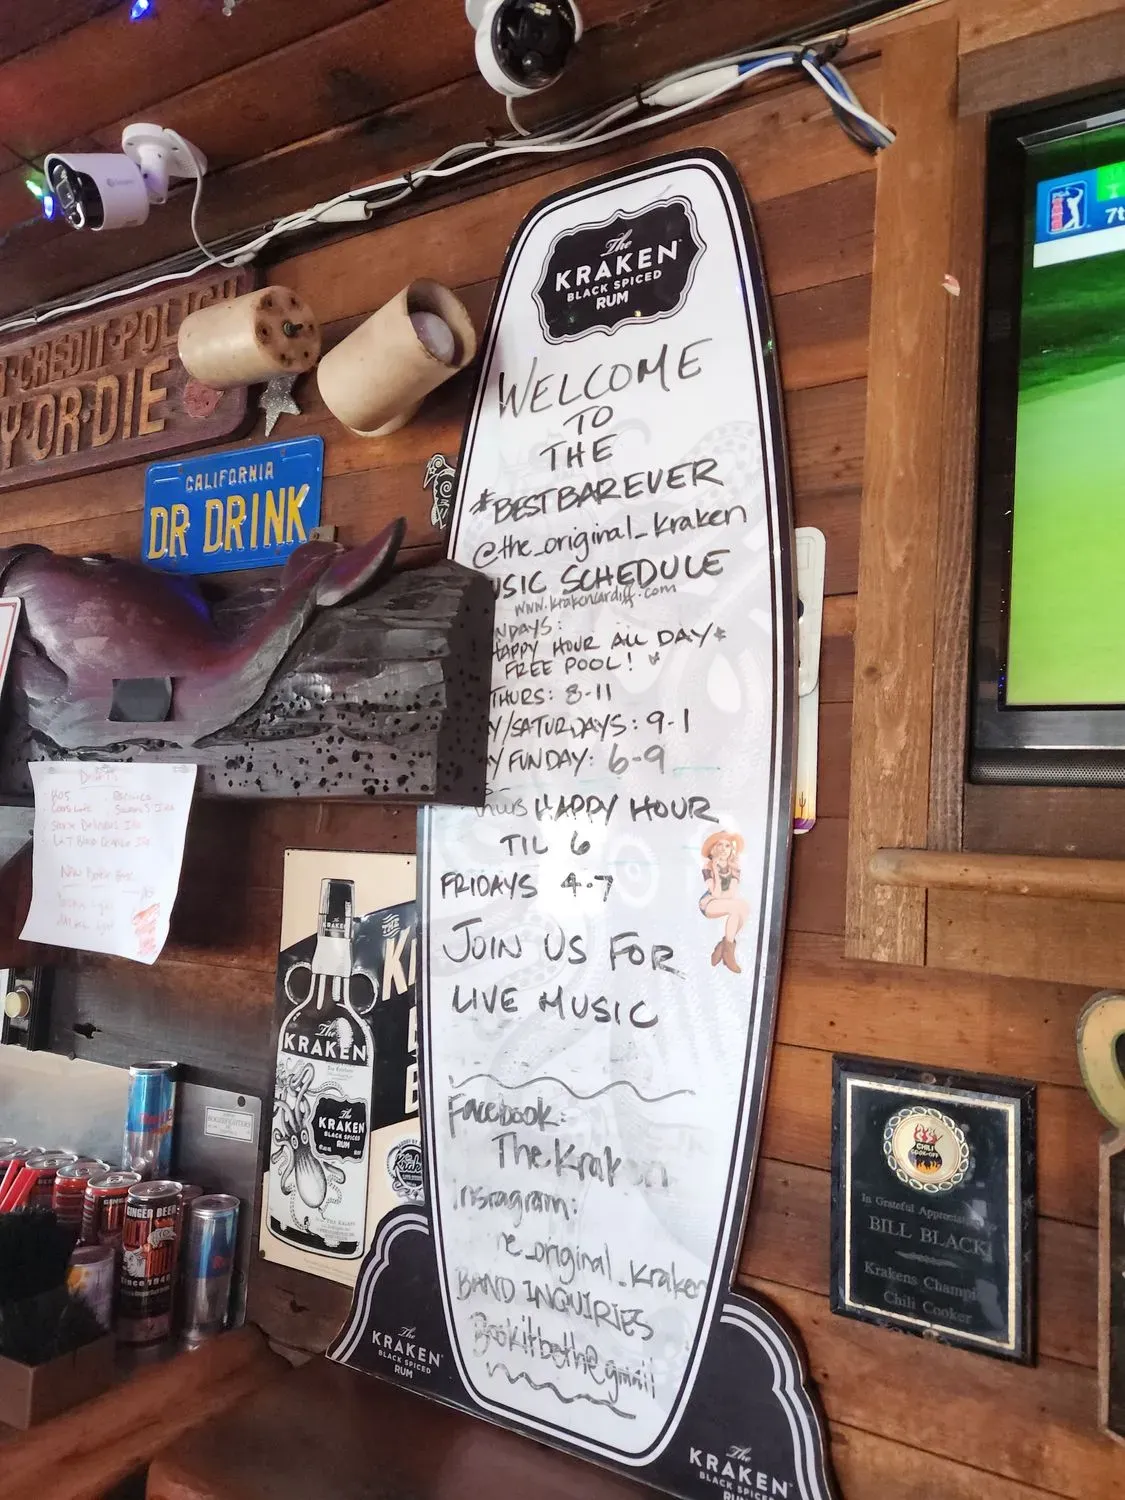 CREDIT·POLI
Y·OR·DIE
CALIFORNIA
DR DRINK
The
KRAKEN
BLACK SPICED
RUM
WELCOME
TO
THE
#BESTBAREVER
@the_original_kraken
USIC SCHEDULE
www.krakencardiff.com
NDAYS:
HAPPY HOUR ALL DAY*
FREE POOL! *
THURS: 8-11
Y/SATURDAYS: 9-1
Y FUNDAY: 6-9
HAPPY HOUR
TIL 6
FRIDAYS 4-7
JOIN US FOR
LIVE MUSIC
Facebook:
TheKraken
Instagram:
he_original_kraken
BAND INQUIRIES
Bookitbethegmail
The
KRAKEN
BLACK SPICED
RUM
The
KRAKEN
BLACK SPICED
RU
THE
The
KRAKEN
The
KRAKEN
BLACK SPICED
RUM
GINGER BEER
Since 1940
7t
CHILI
COOK-OFF
In Grateful
BILL BLACK
Krakens Champi
Chili Cooker